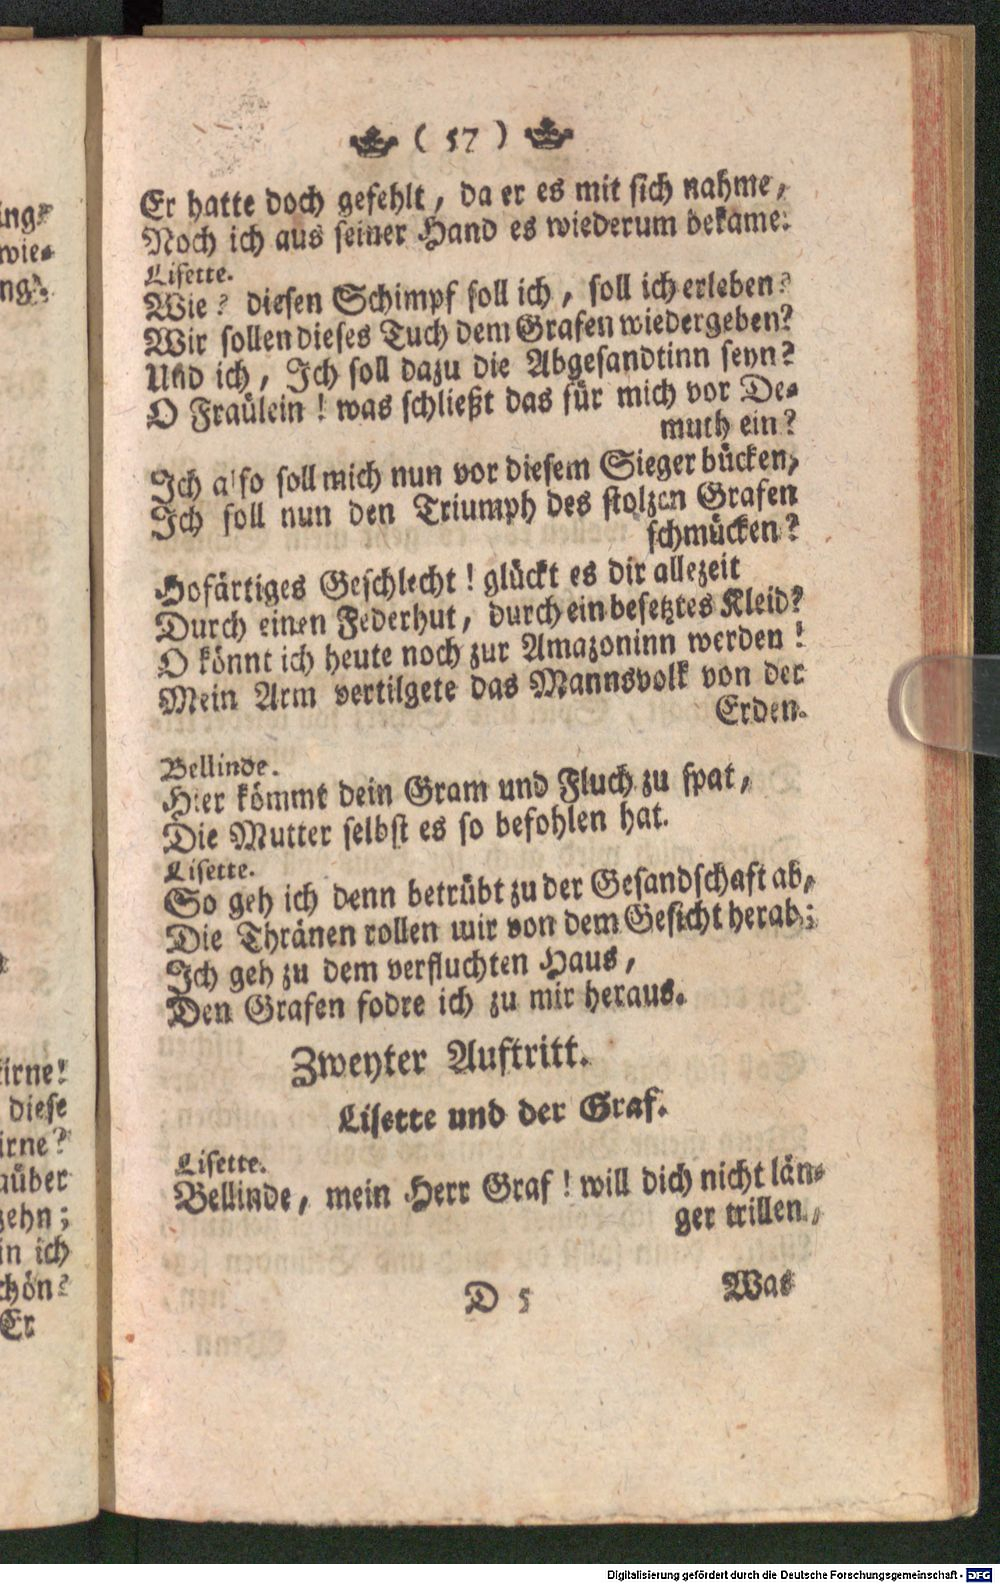 ( 57 )
Er hatte doch gefehlt, da er es mit sich nahme,
Noch ich aus seiner Hand es wiederum bekame.
Lisette.
Wie? diesen Schimpf soll ich, soll ich erleben?
Wir sollen dieses Tuch dem Grafen wiedergeben?
Und ich, Ich soll dazu die Abgesandtinn seyn?
O Fraülein! was schließt das für mich vor De-
muth ein?
Ich also soll mich nun vor diesem Sieger bücken,
Ich soll nun den Triumph des stolzen Grafen
schmücken?
Hofärtiges Geschlecht! glückt es dir allezeit
Durch einen Federhut, durch ein besetztes Kleid?
O könnt ich heute noch zur Amazoninn werden!
Mein Arm vertilgete das Mannsvolk von der
Erden.
Bellinde.
Hier kömmt dein Gram und Fluch zu spat,
Die Mutter selbst es so befohlen hat.
Lisette.
So geh ich denn betrübt zu der Gesandschaft ab,
Die Thränen rollen mir von dem Gesicht herab;
Ich geh zu dem verfluchten Haus,
Den Grafen fodre ich zu mir heraus.
Zweyter Auftritt.
Lisette und der Graf.
Lisette.
Bellinde, mein Herr Graf! will dich nicht län-
ger trillen,
D 5
Was
ing-
wie-
ng.
irne!
diese
irne?
aüber
zehn;
in ich
chön?
Er
Digitalisierung gefördert durch die Deutsche Forschungsgemeinschaft - DFG